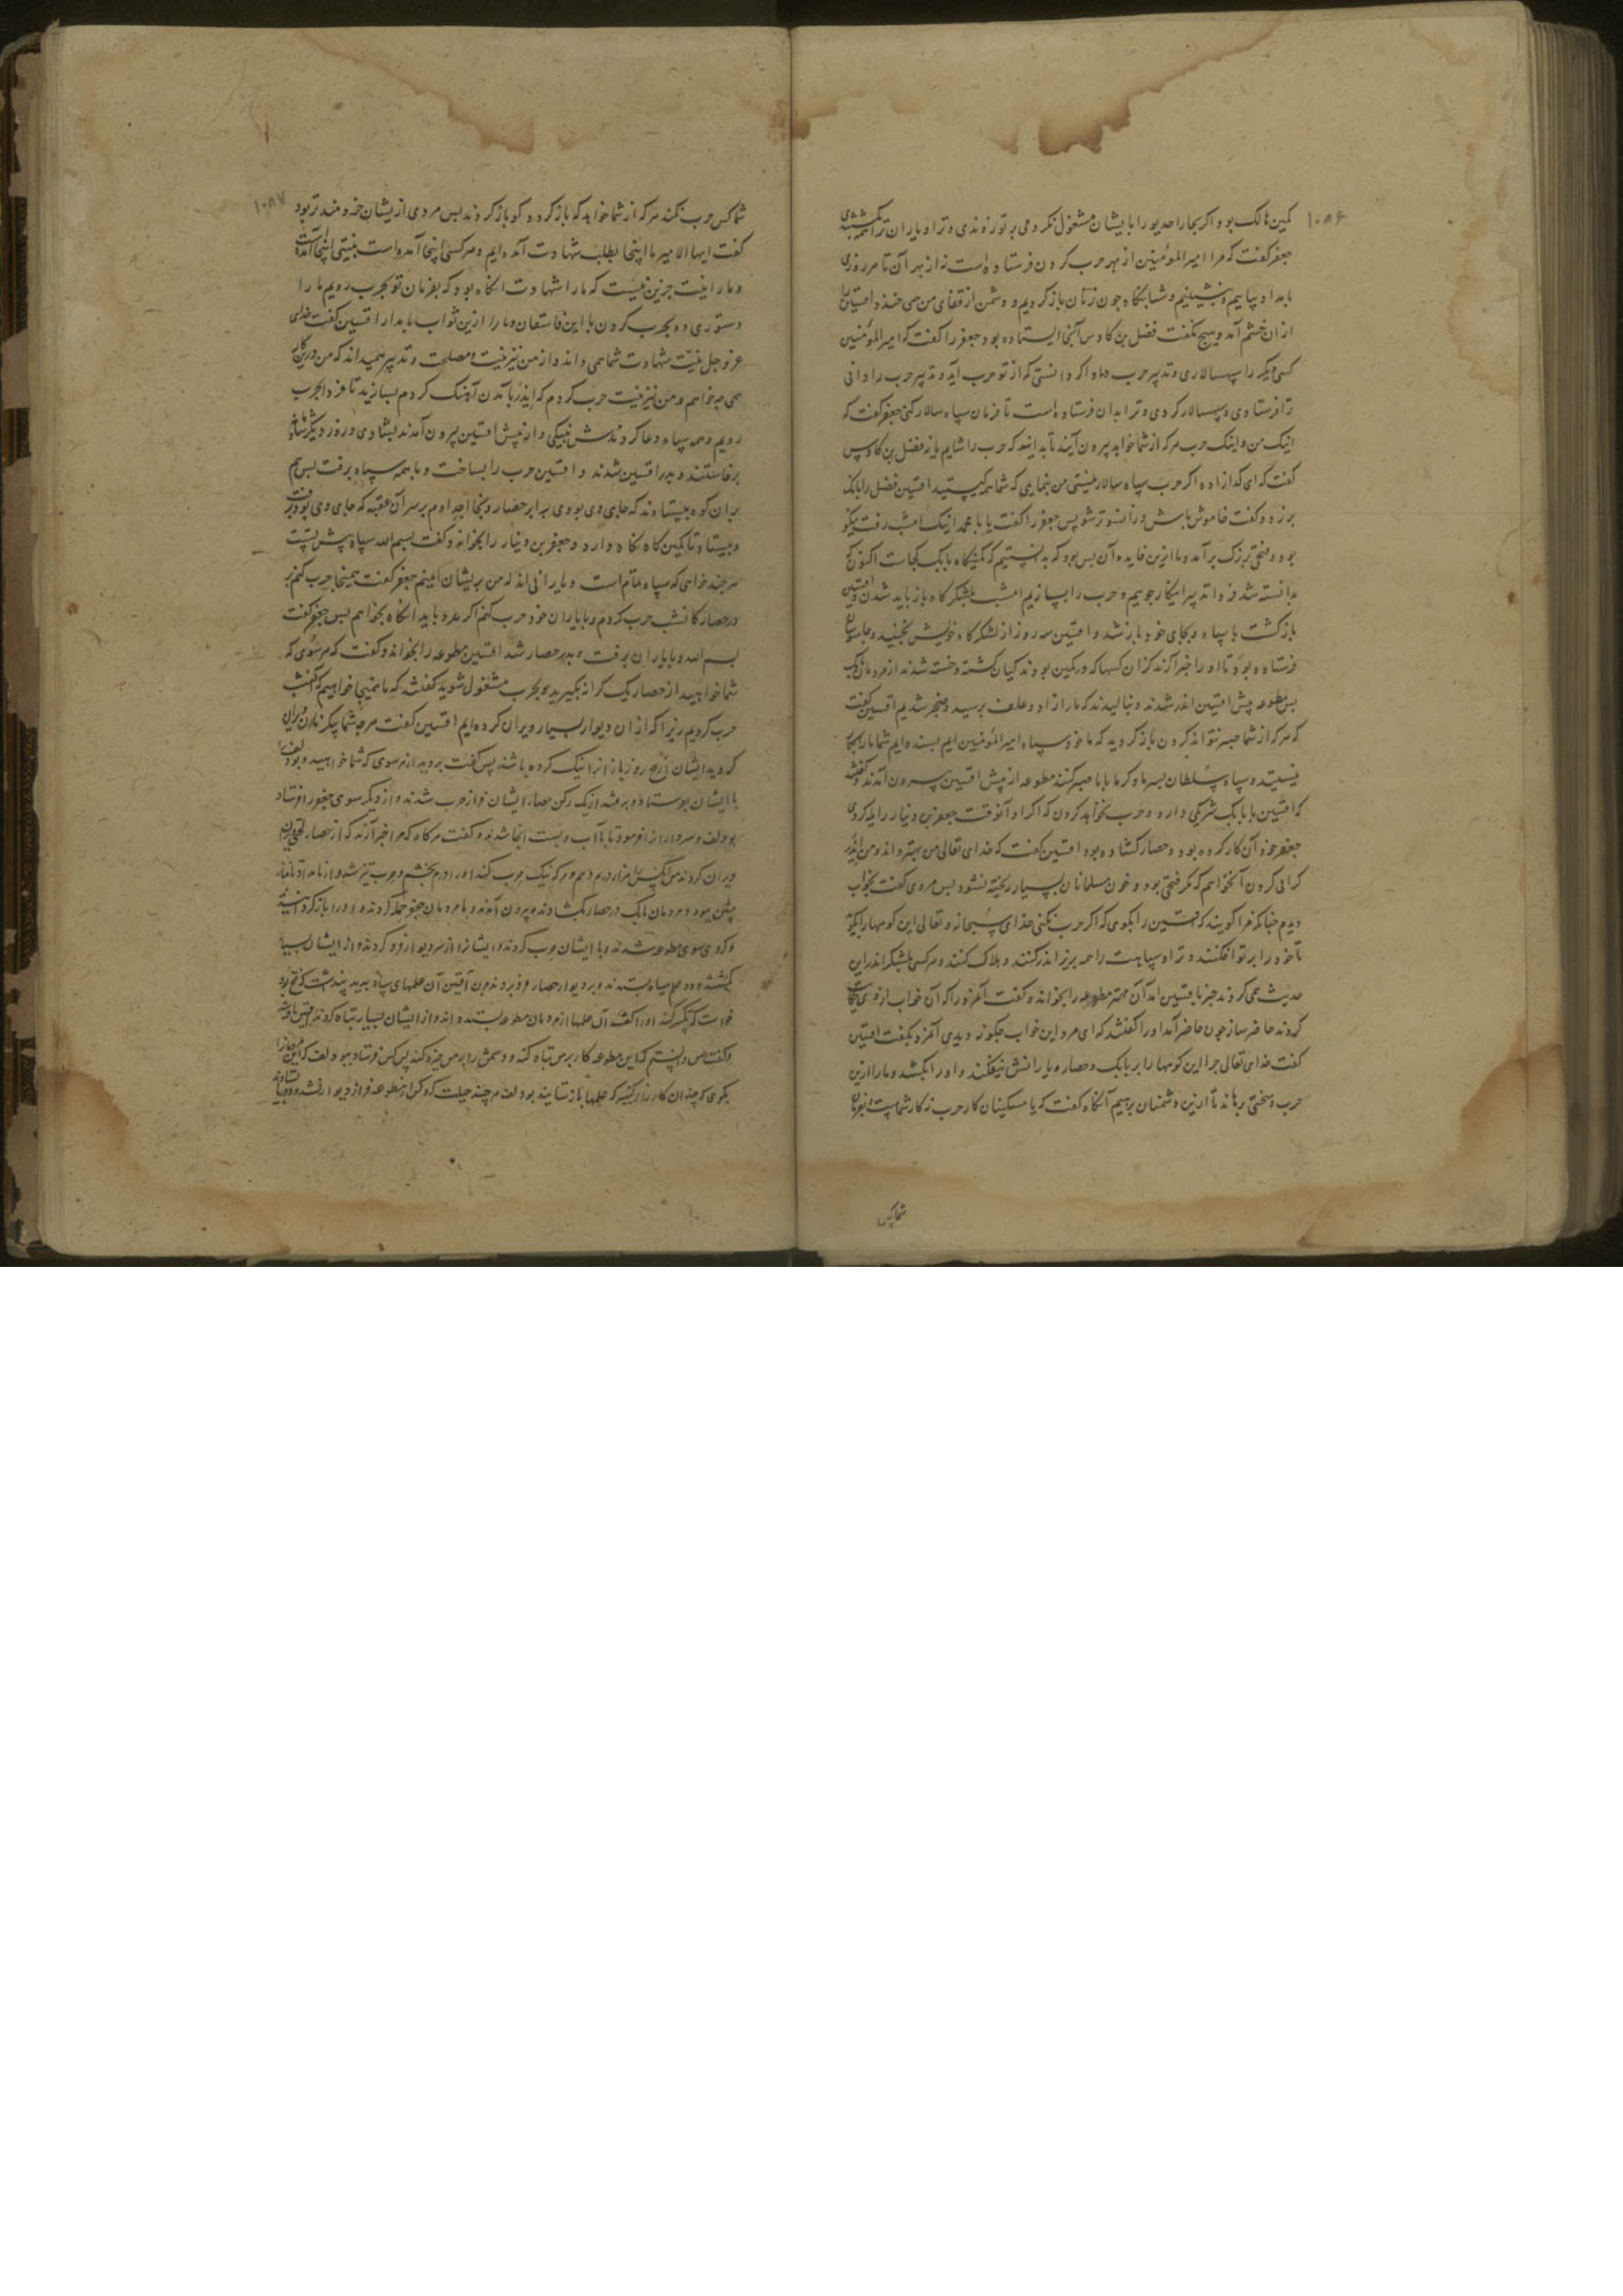 ۱۰۸۶
کمین هالک بود اکر بخارا خدیو را با یشان مشغول نکردمی بر تو زدندی و ترا و یاران ترا همه بکشتندی
جعفر کفت که مرا امیر المؤمنین از بهر حرب کردن فرستاده است نه از بهر آن تا هر روزی
بامداد بیاییم و بنشینیم و شبانکاه چون زنان باز کردیم و دشمن از قفای من همی خندد افشین را
از ان خشم آمد و هیچ نکفت فضل بن کاوس آنجا ایستاده بود جعفر را کفت که امیر المؤمنین
کسی دیکر را سپهسالاری و تدبیر حرب داد اکر دانستی که از تو حرب آید و تدبیر حرب را دانی
ترا فرستادی و سپهسالار کردی و ترا بدان فرستاده است تا فرمان سپاه سالار کنی جعفر کفت که
اینک من و اینک حرب هر که از شما خواهد بیرون آیند تا بدانید که حرب را شایم یا نه فضل بن کاوس
کفت که ای کدازاده اکر حرب سپاه سالار نیستی من بنمایمی که شما همه کیستید افشین فضل را بانک
برزد و کفت خاموش باش و فراتر شو پس جعفر را کفت یا با محمد انیک امشب رفت نیکو
بود و فتحی بزرک برآمد و ما ازین فایده آن بس بود که بدانستیم که کمینکاه بابک کجاست اکنون که
دانسته شد فردا تدبیر اینکار جوییم و حرب را بسازیم امشب بلشکرکاه باز باید شدن و افشین
بازکشت با سپاه و بجای خود باز شد و افشین سه روز از لشکرکاه خویش نجنبید و جاسوسان
فرستاده بود تا او را خبر آرند کزان کسها که در کمین بودند کیان کشته و خسته شدند از مردمان بابک
پس مطوعه پیش افشین اندر شدند و بنالیدند که ما را زاد و علف برسید و ضجر شدیم افشین کفت
که هر که از شما صبر نتواند کردن باز کردید که ما خود سپاه امیر المؤمنین ایم بسنده ایم شما ما را بکار
نیستید و سپاه سلطان بسرما و کرما با ما صبر کنند مطوعه از پیش افشین بیرون آمدند و کفتند
که افشین با بابک شریکی دارد و حرب نخواهد کردن که اکر او آنوقت جعفر بن دینار را یله کردی
جعفر خود آن کار کرده بود و حصار کشاده بود افشین کفت که خدای تعالی من بهتر داند و من ایدر
کرانی کردن آنخواهم که مکر فتحی بود و خون مسلمانان بسیار ریخته نشود پس مردی کفت بخواب
دیدم چنانکه مرا کویند که افشین را بکوی که اکر حرب نکنی خدای سبحانه و تعالی این کوهها را بکوید
تا خود را بر تو افکنند و تراه سپاهت را همه بزیر اندر کنند و هلاک کنند و هر کسی بلشکر اندر این
حدیث همی کردند خبر بافشین آمد آن مهتر مطوعه را بخواند و کفت آنمرد را که آن خواب از وی حکایت
کردند حاضر ساز چون حاضر آمد او را کفتند که ای مرد این خواب چکونه دیدی آنمرد بکفت افشین
کفت خدای تعالی چرا این کوهها را بر بابک و حصار و یارانش نیفکند و او را نکشد و ما را ازین
حرب و سختی برهاند تا ازین دشمنان برهیم آنکاه کفت که یا مسکینان کار حرب نه کار شماست و بفرمان
شما کس
۱۰۸۷
شما کس حرب نکند هر که از شما خواهد که باز کردد کو باز کردند پس مردی ازیشان خردمندتر بود
کفت ایها الامیر ما اینجا بطلب شهادت آمده ایم و هر کسی اینجا آمده است بنیتی اینجا آمده است
و ما را نیت جز این نیست که ما را شهادت انکاه بود که بفرمان تو بحرب رویم ما را
دستوری ده بحرب کردن با این فاسقان و ما را ازین ثواب باز مدار افشین کفت خدای
عز و جل نیت شهادت شما همی داند و از من نیز نیت و مصلحت و تدبیر همیداند که من درین کار
همی چه خواهم و من نیز نیت حرب کردم که ایدر بآمدن آهنک کردم بسازید تا فردا بحرب
رویم و همه سپاه دعا کردندش بنیکی و از پیش افشین بیرون آمدند بشادی و روز دیکر سپاه
برخاستند و بدر افشین شدند و افشین حرب را بساخت و با همه سپاه برفت پس هم
بران کوه بیستادند که جای وی بودی برابر حصار و بخارا خداه هم بر سر آن عقبه که جای وی بود برفت
و بیستاد تا کمین کاه نکاه دارد و جعفر بن دینار را بخواند و کفت بسم الله سپاه پیش تست
هر چند خواهی که سپاه تمام است و یارانی اند که من بریشان ایمنم جعفر کفت همینجا حرب کنم بر
در حصار کانشب حرب کردم و با یاران خود حرب کنم اکر مدد باید انکاه بخواهم پس جعفر کفت
بسم الله و با یاران برفت و بدر حصار شد افشین مطوعه را بخواند و کفت که هر سوی که
شما خواهید از حصار یک کرانه بکیرید و بحرب مشغول شوید کفتند که ما همینجا خواهیم که آنشب
حرب کردیم زیرا که از ان دیوار بسیار ویران کرده ایم افشین کفت هر چه شما بیکروز ویران
کردید ایشان پنج روز باز از انیک کرده باشند پس کفت بروید از هر سوی که شما خواهید و بودلف
با ایشان بفرستاد و برفتند از یک رکن حصار ایشان فراز حرب شدند و از دیکر سوی جعفر را فرستاد
بودلف و سرداران را فرمود تا با آب و پست آنجا شدند و کفت هر کاه که مرا خبر آرند که از حصار لختی ویران
ویران کردند من آنکس را هزار درم دهم و هر که نیک حرب کند او را درم بخشم و حرب تیز شد و از بامداد تا نماز
پیشین ببود و مردمان بابک در حصار بکشادند و بیرون آمدند و با مردمان جعفر حمله کردند و او را باز کردانیدند
و کروهی سوی مطوعه شدند و با ایشان حرب کردند و ایشان را از سر دیوار فرو کردند و از ایشان بسیار
بکشتند و دو علم سیاه بستدند و بر دیوار حصار فرو بردند چون افشین آن علمهای سیاه بدید پنداشت که فتح بود
خواست که تکبیر کند او را کفتند آن علمها از مردمان مطوعه بستده اند و از ایشان بسیار تباه کردند
و کفت من دانستم که این مطوعه کار بر من تباه کنند و دشمن را بر من چیره کنند پس کس فرستاد ببودلف که
بکوی که چندان کارزار کنید که علمها باز ستانید بودلف هر چند حیلت کرد کس از مطوعه فراز دیوار نشد